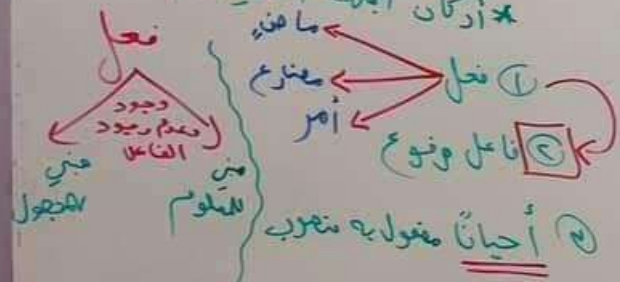 * أركان
① فعل
ماضٍ
مضارع
أمر
② فاعل مرفوع
③ أحيانًا مفعول به منصوب
فعل
وجود
وعدم وجود
الفاعل
مبني
للمعلوم
مبني
للمجهول